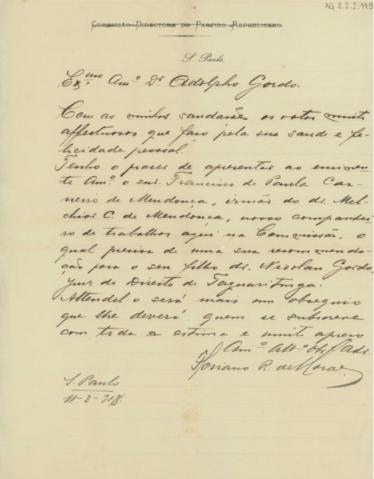 Commissão Directora do Partido Republicano
S. Paulo.
Exmo Amo Dr Adolpho Gordo.
Com as minhas saudações os votos muito
affectuosos que faço pela sua saude e fe-
licidade pessoal
Tenho o prazer de apresentar ao eminen-
te Amo o snr. Francisco de Paula Car-
neiro de Mendonça, irmão do dr. Mel-
chior C. de Mendonca, nosso companhei-
ro de trabalhos aqui na Commissão, o
qual precisa de uma sua recommenda-
ção para o seu filho dr. Nicolau Gordo,
juiz de Direito de Taquaritinga.
Attendel o será mais um obsequio
que lhe deverá quem se subscreve
com toda a estima e muito apreço
Amo Atto
Floriano R. de Moraes
S. Paulo
11-2-918.